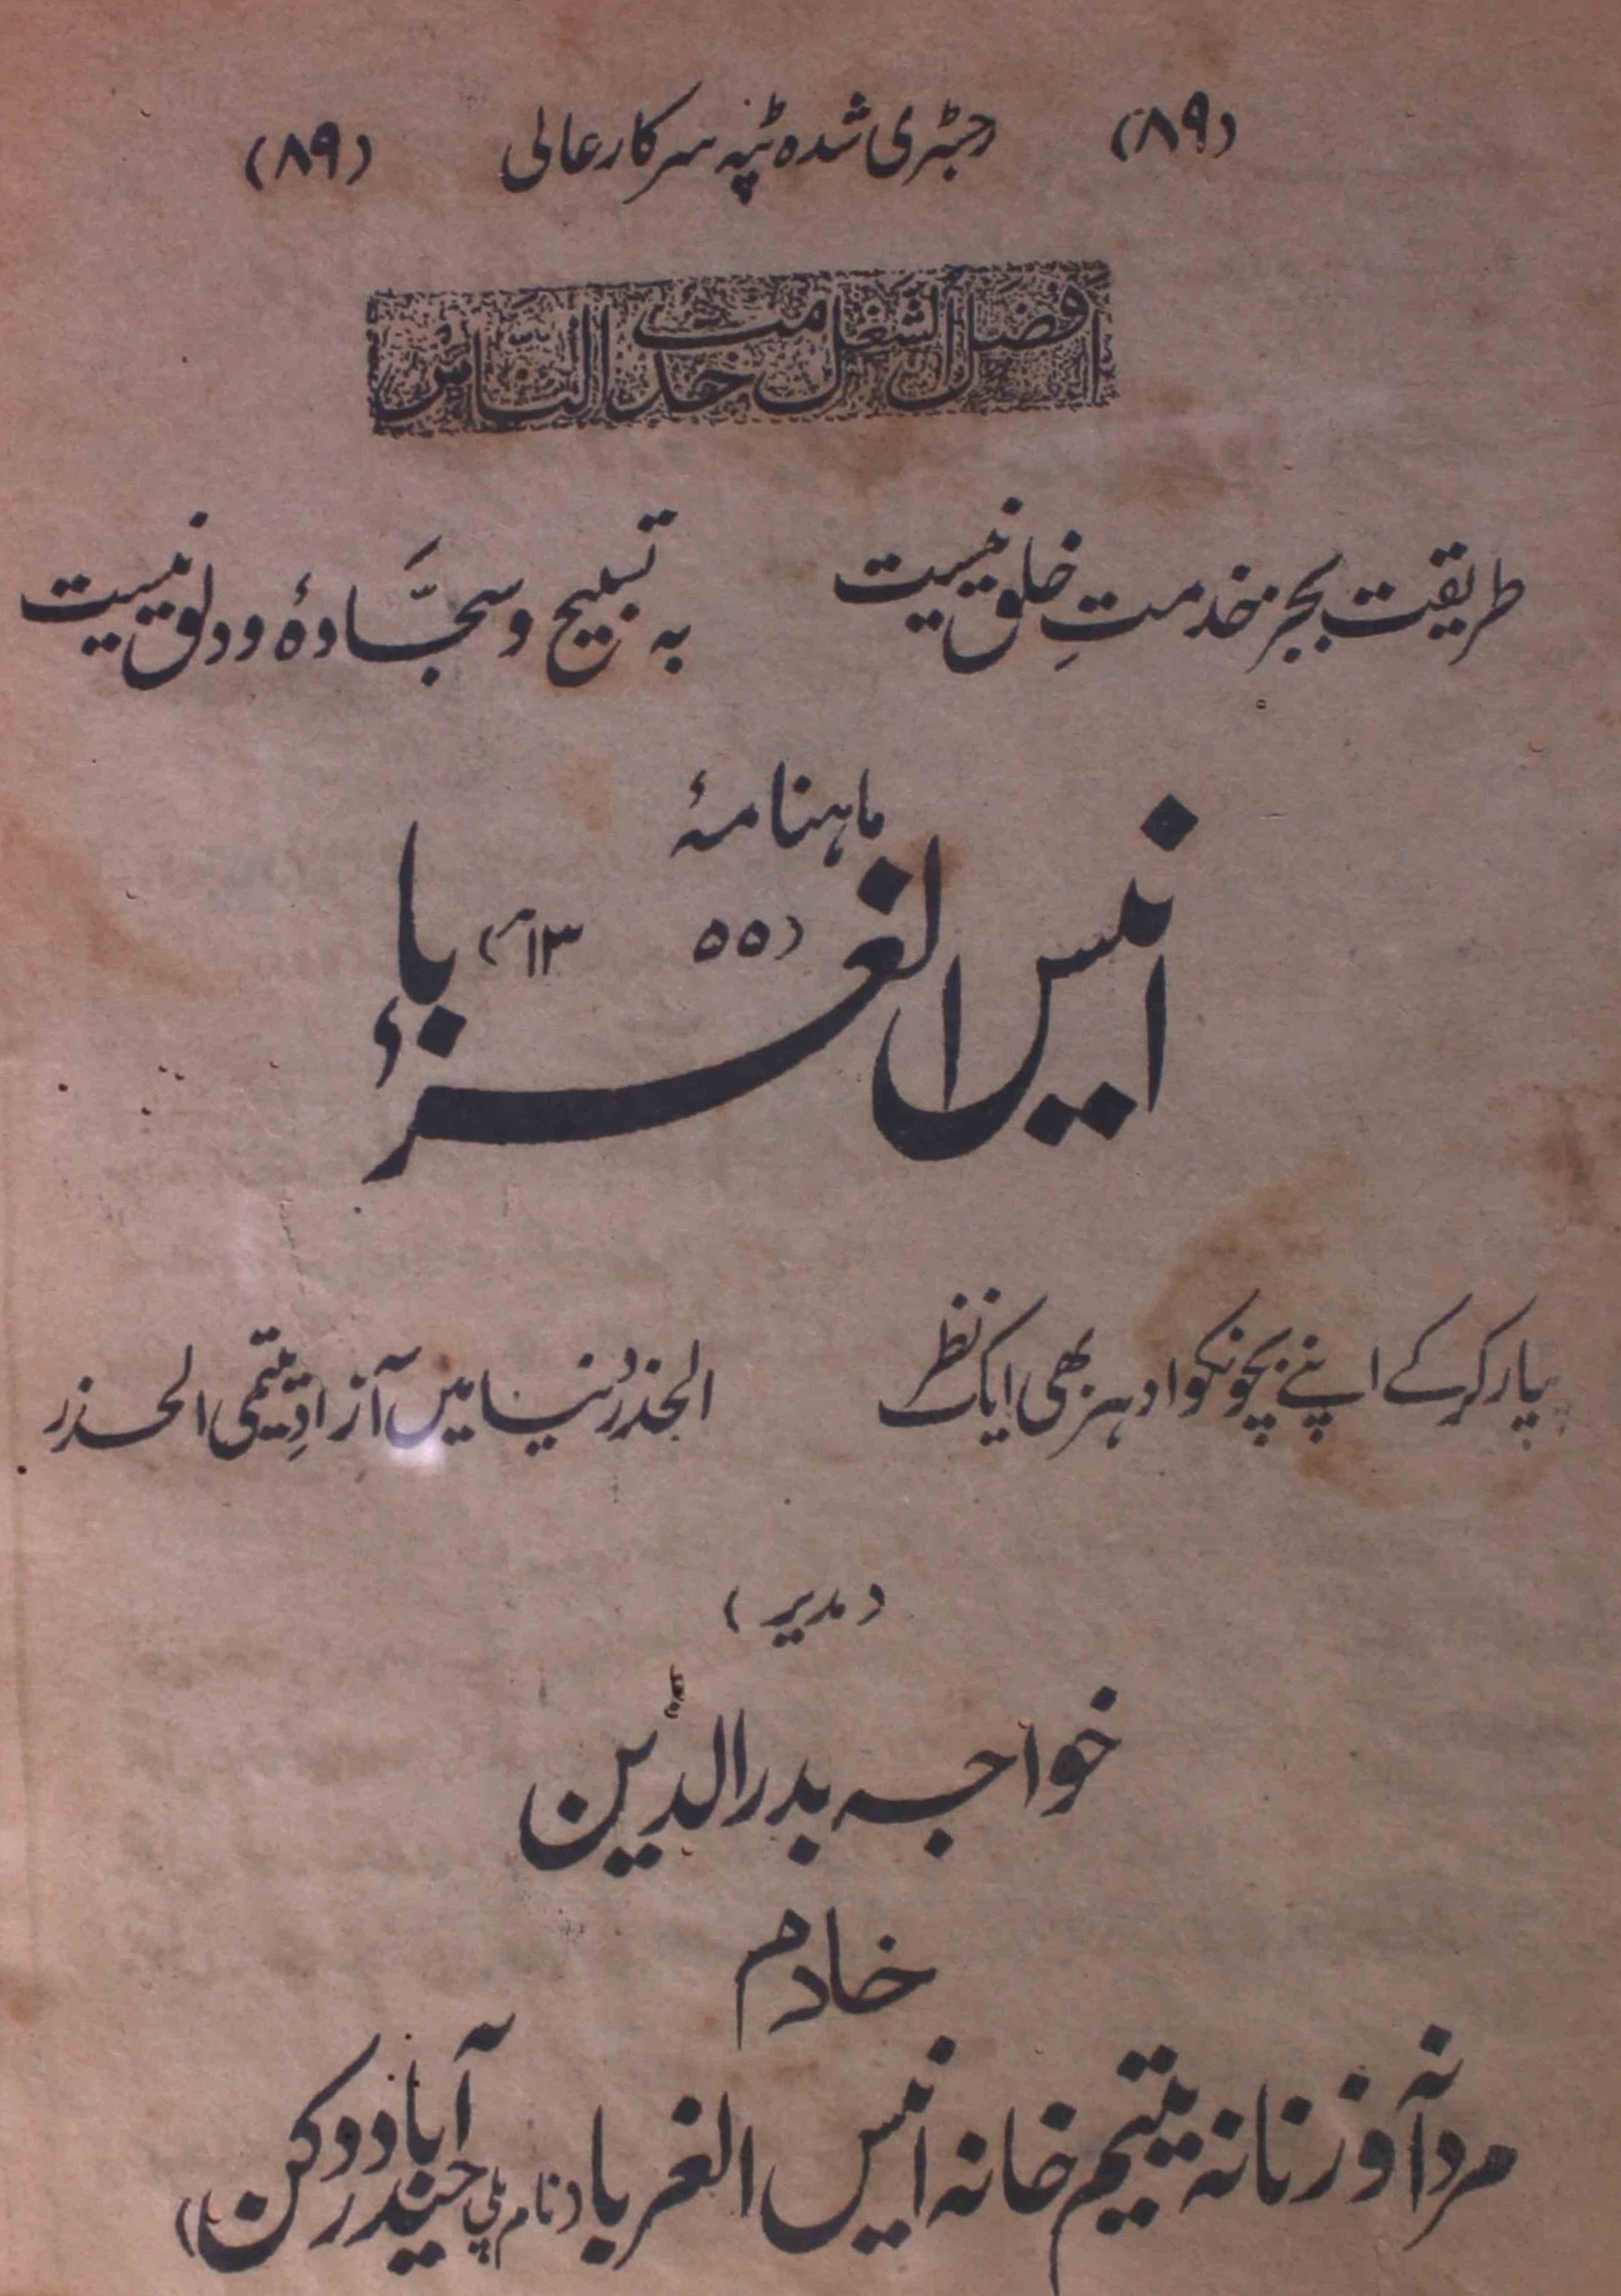 (۸۹) رجٹری شدہ ٹپہ سرکار عالی (۸۹)
افضل الشغل خدمت الناس
طریقت بجز خدمتِ خلق نیست بہ تسبیح و سجَّادۂ و دلق نیست
ماہنامۂ
انیس الغرباء
(۵۵ ۱۳)
پیار کرکے اپنے بچونکو ادہر بھی ایک نظر الحذر دُنیا میں آزادِ یتیمی الحذر
(مدیر)
خواجہ بدرالدین
خادم
مردانہ و زنانہ یتیم خانہ انیس الغربا (نام پلی حیدرآباد دکن)